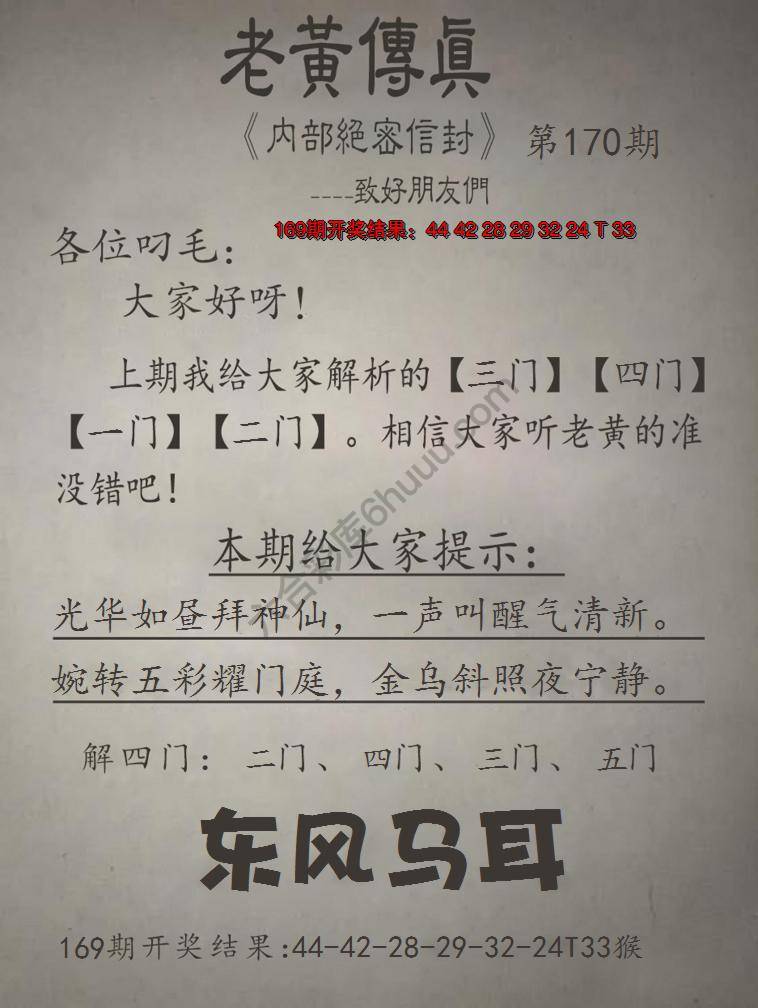 老黃傳真
《内部絕密信封》 第170期
----致好朋友們
169期开奖结果：44 42 28 29 32 24 T 33
各位叼毛：
大家好呀！
上期我给大家解析的【三门】【四门】
【一门】【二门】。相信大家听老黄的准
没错吧！
六合彩库6huuu.com
本期给大家提示：
光华如昼拜神仙，一声叫醒气清新。
婉转五彩耀门庭，金乌斜照夜宁静。
解四门： 二门、 四门、 三门、 五门
东风马耳
169期开奖结果:44-42-28-29-32-24T33猴